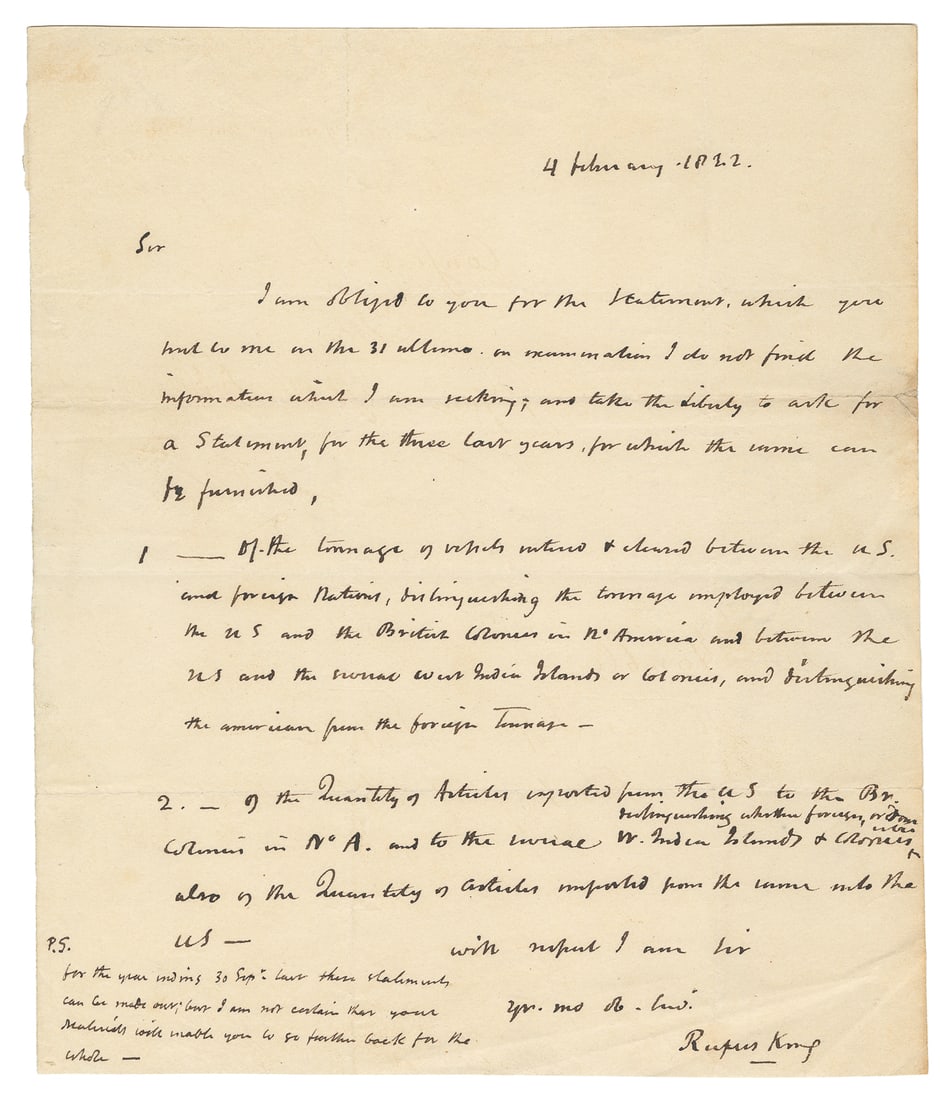 4 february .1822.
Sir
I am obliged to you for the Statement, which you
sent to me on the 31 ultimo. on examination I do not find the
information which I am seeking; and take the Liberty to ask for
a Statement, for the three last years, for which the same can
be furnished,
1 — Of the tonnage of vessels entered & cleared between the U S.
and foreign Nations, distinguishing the tonnage employed between
the U S and the British Colonies in No America and between the
U S and the several west India Islands or Colonies, and distinguishing
the american from the foreign Tonnage —
2. — of the Quantity of Articles exported from the U S to the Br.
distinguishing whether foreign, or Dom
Colonies in No A. and to the several W. India Islands & Colonies,
also of the Quantity of articles imported from the same into the
US —
with respect I am Sir
yr. mo ob. Servt.
Rufus King
P.S.
for the year ending 30 Sepr. last these statements
can be made out; but I am not certain that your
materials will enable you to go further back for the
whole —